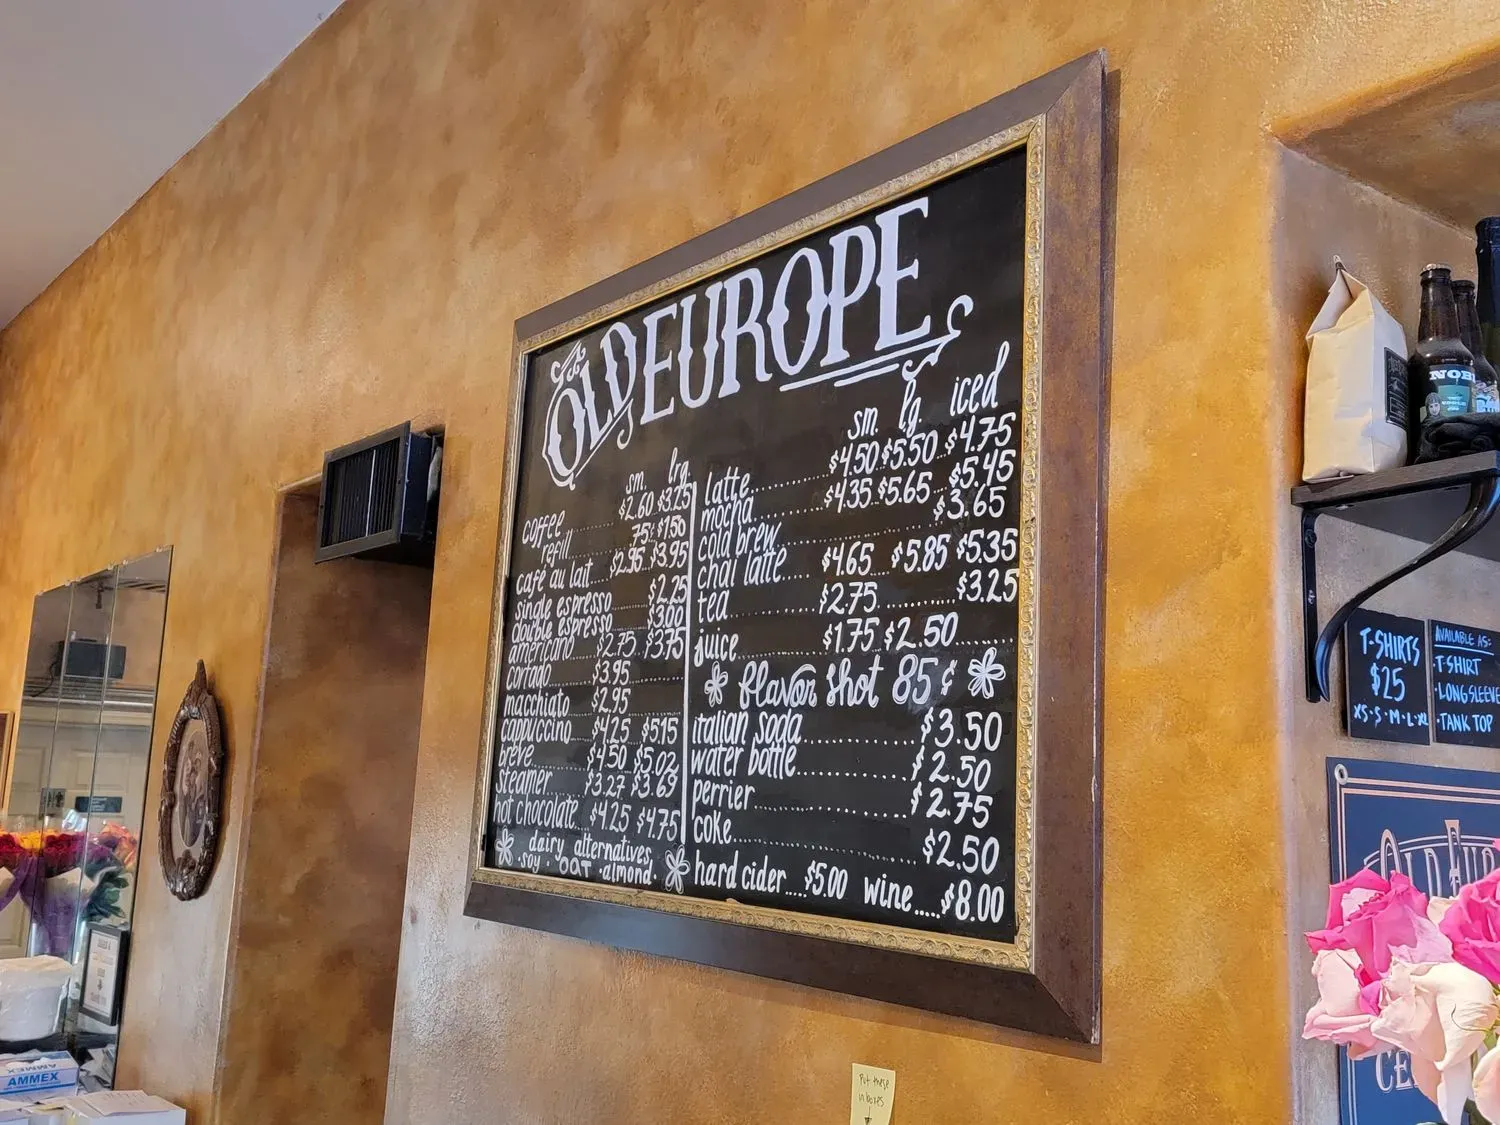 OLD EUROPE
sm. lrg.
coffee $2.60 $3.25
refill 75¢ $1.50
café au lait $2.95 $3.95
single espresso $2.25
double espresso $3.00
americano $2.75 $3.75
cortado $3.95
macchiato $2.95
cappuccino $4.25 $5.15
breve $4.50 $5.02
steamer $3.27 $3.69
hot chocolate $4.25 $4.75
dairy alternatives
·soy· oat ·almond·
sm. lg. iced
latte $4.50 $5.50 $4.75
mocha $4.35 $5.65 $5.45
cold brew $3.65
chai latte $4.65 $5.85 $5.35
tea $2.75 $3.25
juice $1.75 $2.50
flavor shot 85¢
italian soda $3.50
water bottle $2.50
perrier $2.75
coke $2.50
hard cider $5.00 wine $8.00
T-SHIRTS
$25
XS·S·M·L·XL
AVAILABLE AS:
·T-SHIRT
·LONG SLEEVE
·TANK TOP
OLD EUR
CE
AMMEX
AMMEX
Put these
in boxes